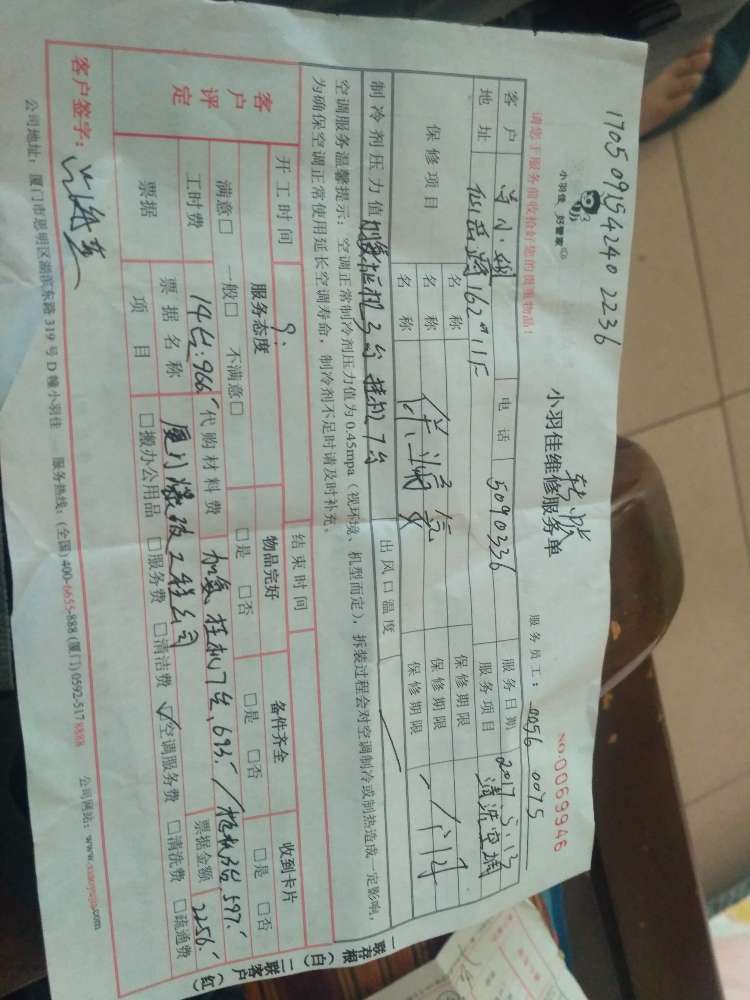 17050915424022​36
小羽佳 好管家
请您于服务前收拾好您的贵重物品!
小羽佳维修服务单
转账
服务员工: 0056 0075
NO.0069946
客户 小姐 电话 5090336 服务日期 2017.5.13
地址 仙岳路162 服务项目 清洗空调
保修项目 名称 保修期限
名称 保修期限
名称 保修期限
制冷剂压力值 加氟柜机3台 挂机7台 出风口温度
空调服务温馨提示:空调正常制冷剂压力值为0.45mpa(视环境、机型而定),拆装过程会对空调制冷或制热造成一定影响,
为确保空调正常使用延长空调寿命,制冷剂不足时请及时补充。
开工时间 9: 结束时间
客户评定 服务态度 物品完好 备件齐全 收到卡片
满意□ 一般□ 不满意□ □是 □否 □是 □否 □是 □否
工时费 14台:966 代购材料费 加氟挂机7台,693./柜机3台,597.
票据 票据名称 厦门爆破工程公司 票据金额 2256.
项目 □搬办公用品 □服务费 □清洁费 ☑空调服务费 □清洗费 □疏通费
客户签字:
公司地址:厦门市思明区湖滨东路319号D幢小羽佳 服务热线:(全国)400-6655-888(厦门)0592-5178888 公司网站:www.xiaoyujia.com
一联存根(白) 二联客户(红)